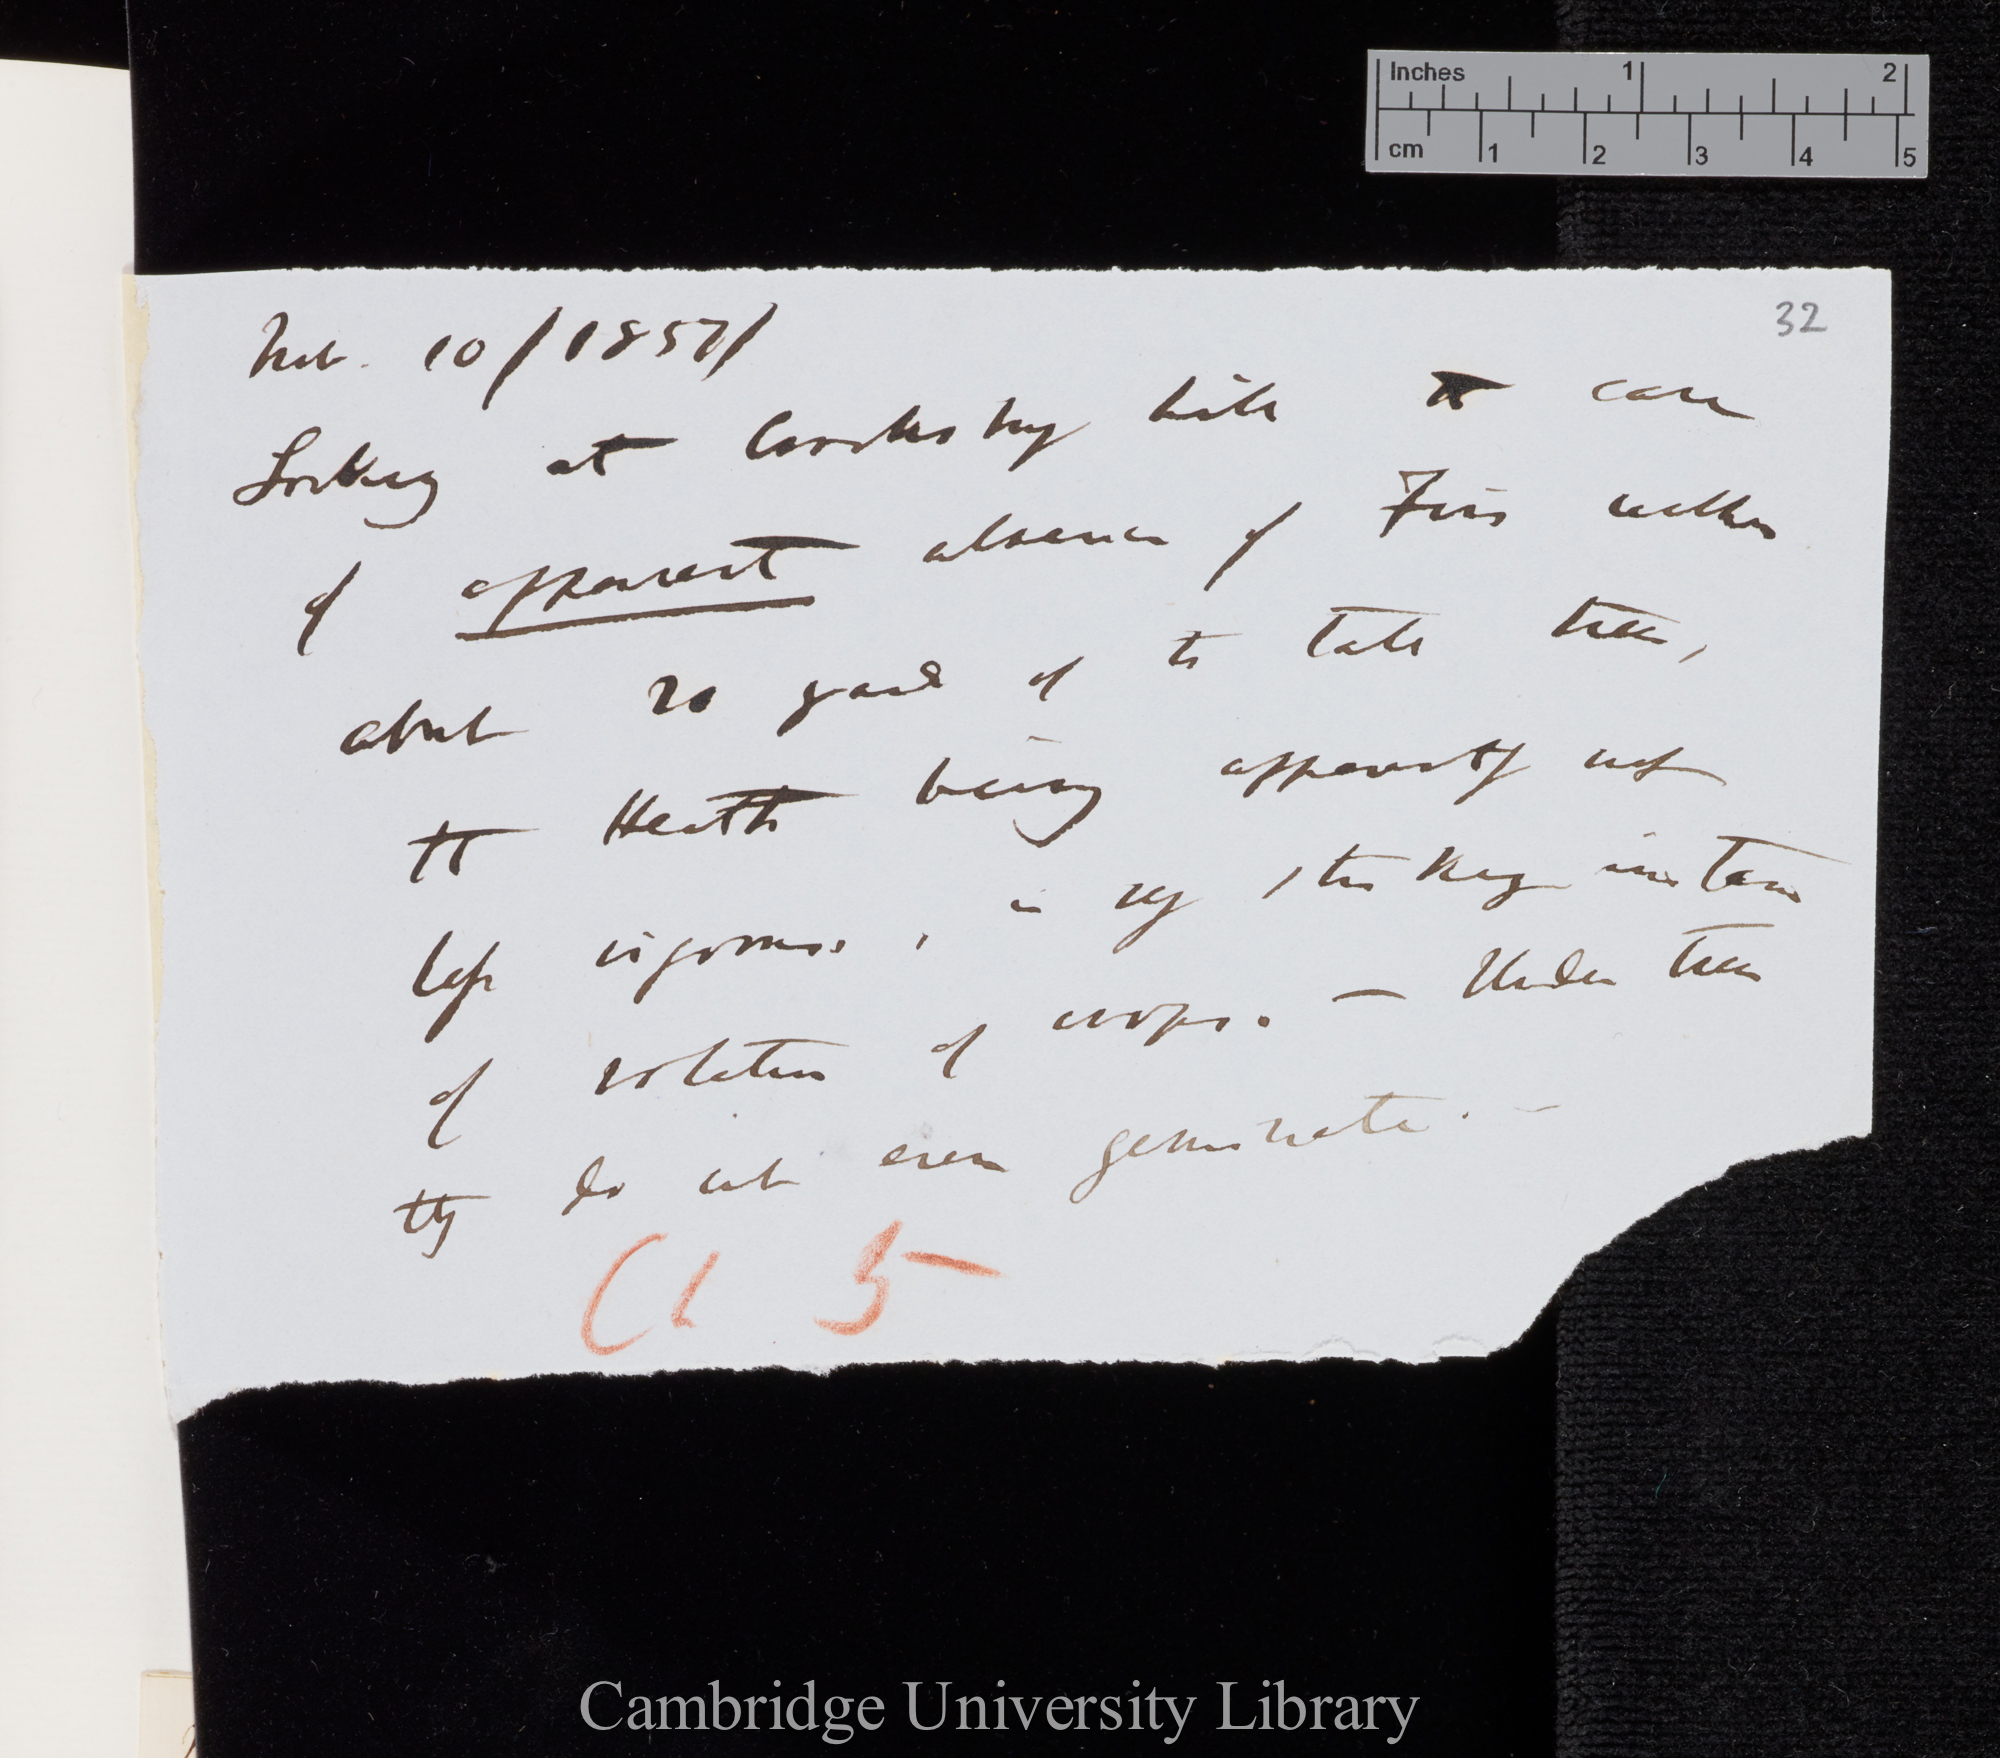 32
Feb. 10/1857/
Looking at Crooksbury hill the case
of apparent absence of Firs within
about 20 yard of the tall trees,
the Heath being apparently not
less vigorous, is my striking instance
of rotation of crops. — Under trees
they do not even germinate. —
Ch 5
Inches 1 2
cm 1 2 3 4 5
Cambridge University Library